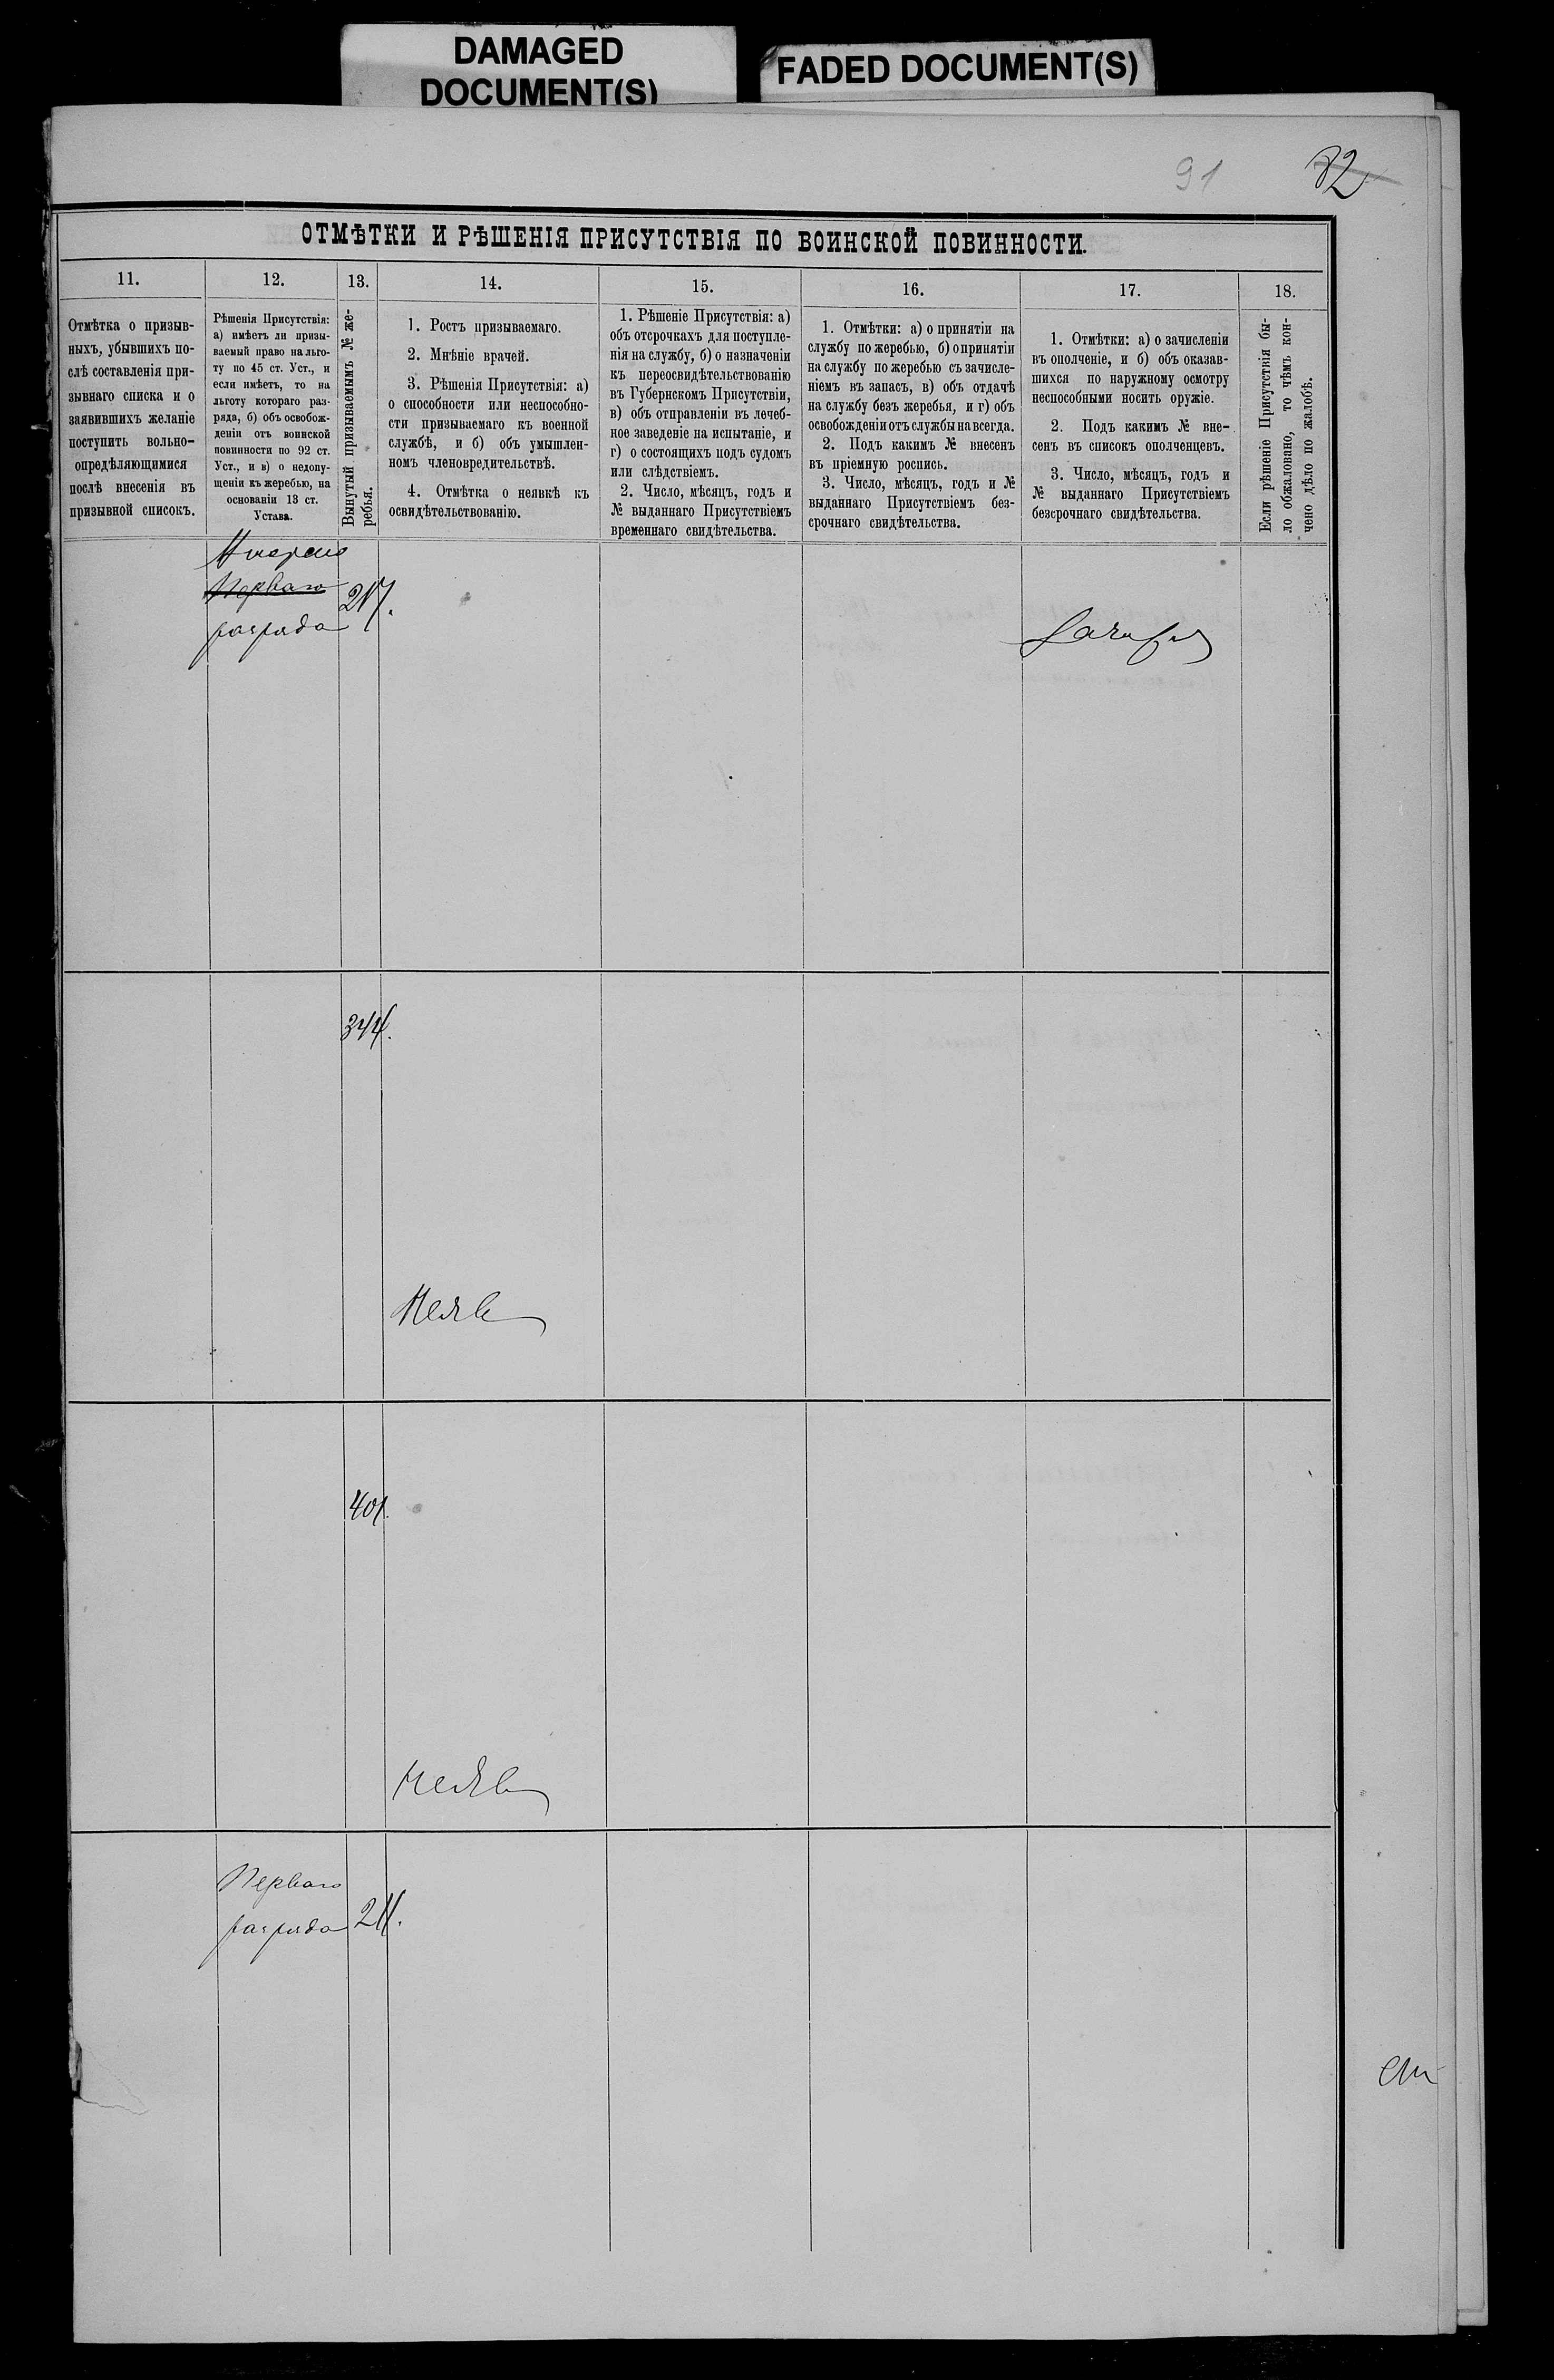 DAMAGED
DOCUMENT(S)
FADED DOCUMENT(S)
91
82
ОТМѢТКИ И РѢШЕНІЯ ПРИСУТСТВІЯ ПО ВОИНСКОЙ ПОВИННОСТИ.
11.
Отмѣтка о призыв-
ныхъ, убывшихъ по-
слѣ составленія при-
зывнаго списка и о
заявившихъ желаніе
поступить вольно-
опредѣляющимися
послѣ внесенія въ
призывной списокъ.
12.
Рѣшенія Присутствія:
а) имѣетъ ли призы-
ваемый право на льго-
ту по 45 ст. Уст., и
если имѣетъ, то на
льготу котораго раз-
ряда, б) объ освобож-
деніи отъ воинской
повинности по 92 ст.
Уст., и в) о недопу-
щеніи къ жеребью, на
основаніи 13 ст.
Устава.
13.
Вынутый призываемымъ № же-
ребья.
14.
1. Ростъ призываемаго.
2. Мнѣніе врачей.
3. Рѣшенія Присутствія: а)
о способности или неспособно-
сти призываемаго къ военной
службѣ, и б) объ умышлен-
номъ членовредительствѣ.
4. Отмѣтка о неявкѣ къ
освидѣтельствованію.
15.
1. Рѣшеніе Присутствія: а)
объ отсрочкахъ для поступле-
нія на службу, б) о назначеніи
къ переосвидѣтельствованію
въ Губернскомъ Присутствіи,
в) объ отправленіи въ лечеб-
ное заведеніе на испытаніе, и
г) о состоящихъ подъ судомъ
или слѣдствіемъ.
2. Число, мѣсяцъ, годъ и
№ выданнаго Присутствіемъ
временнаго свидѣтельства.
16.
1. Отмѣтки: а) о принятіи на
службу по жеребью, б) о принятіи
на службу по жеребью съ зачисле-
ніемъ въ запасъ, в) объ отдачѣ
на службу безъ жеребья, и г) объ
освобожденіи отъ службы навсегда.
2. Подъ какимъ № внесенъ
въ пріемную роспись.
3. Число, мѣсяцъ, годъ и №
выданнаго Присутствіемъ без-
срочнаго свидѣтельства.
17.
1. Отмѣтки: а) о зачисленіи
въ ополченіе, и б) объ оказав-
шихся по наружному осмотру
неспособными носить оружіе.
2. Подъ какимъ № вне-
сенъ въ списокъ ополченцевъ.
3. Число, мѣсяцъ, годъ и
№ выданнаго Присутствіемъ
безсрочнаго свидѣтельства.
18.
Если рѣшеніе Присутствія бы-
ло обжаловано, то чѣмъ кон-
чено дѣло по жалобѣ.
Перваго
разряда
217.
344.
Неяв
401.
Неяв
Перваго
разряда
211.